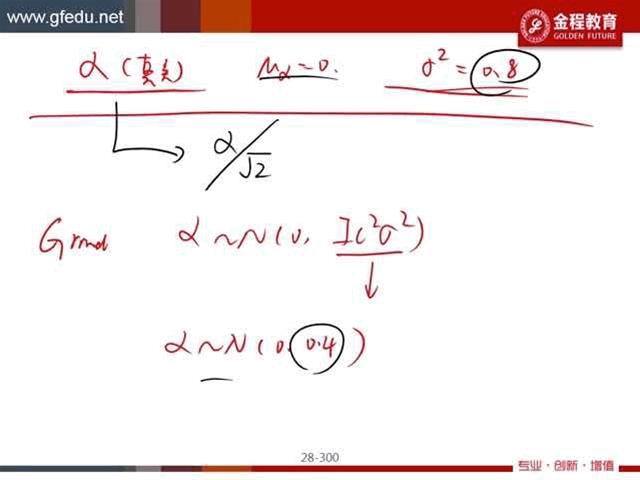 www.gfedu.net
金程教育
GOLDEN FUTURE
α (真실) μα=0. σ² = 0.8
α/√2
Grinold α ~ N(0, IC²σ²)
α ~ N(0, 0.4)
28-300
专业·创新·增值